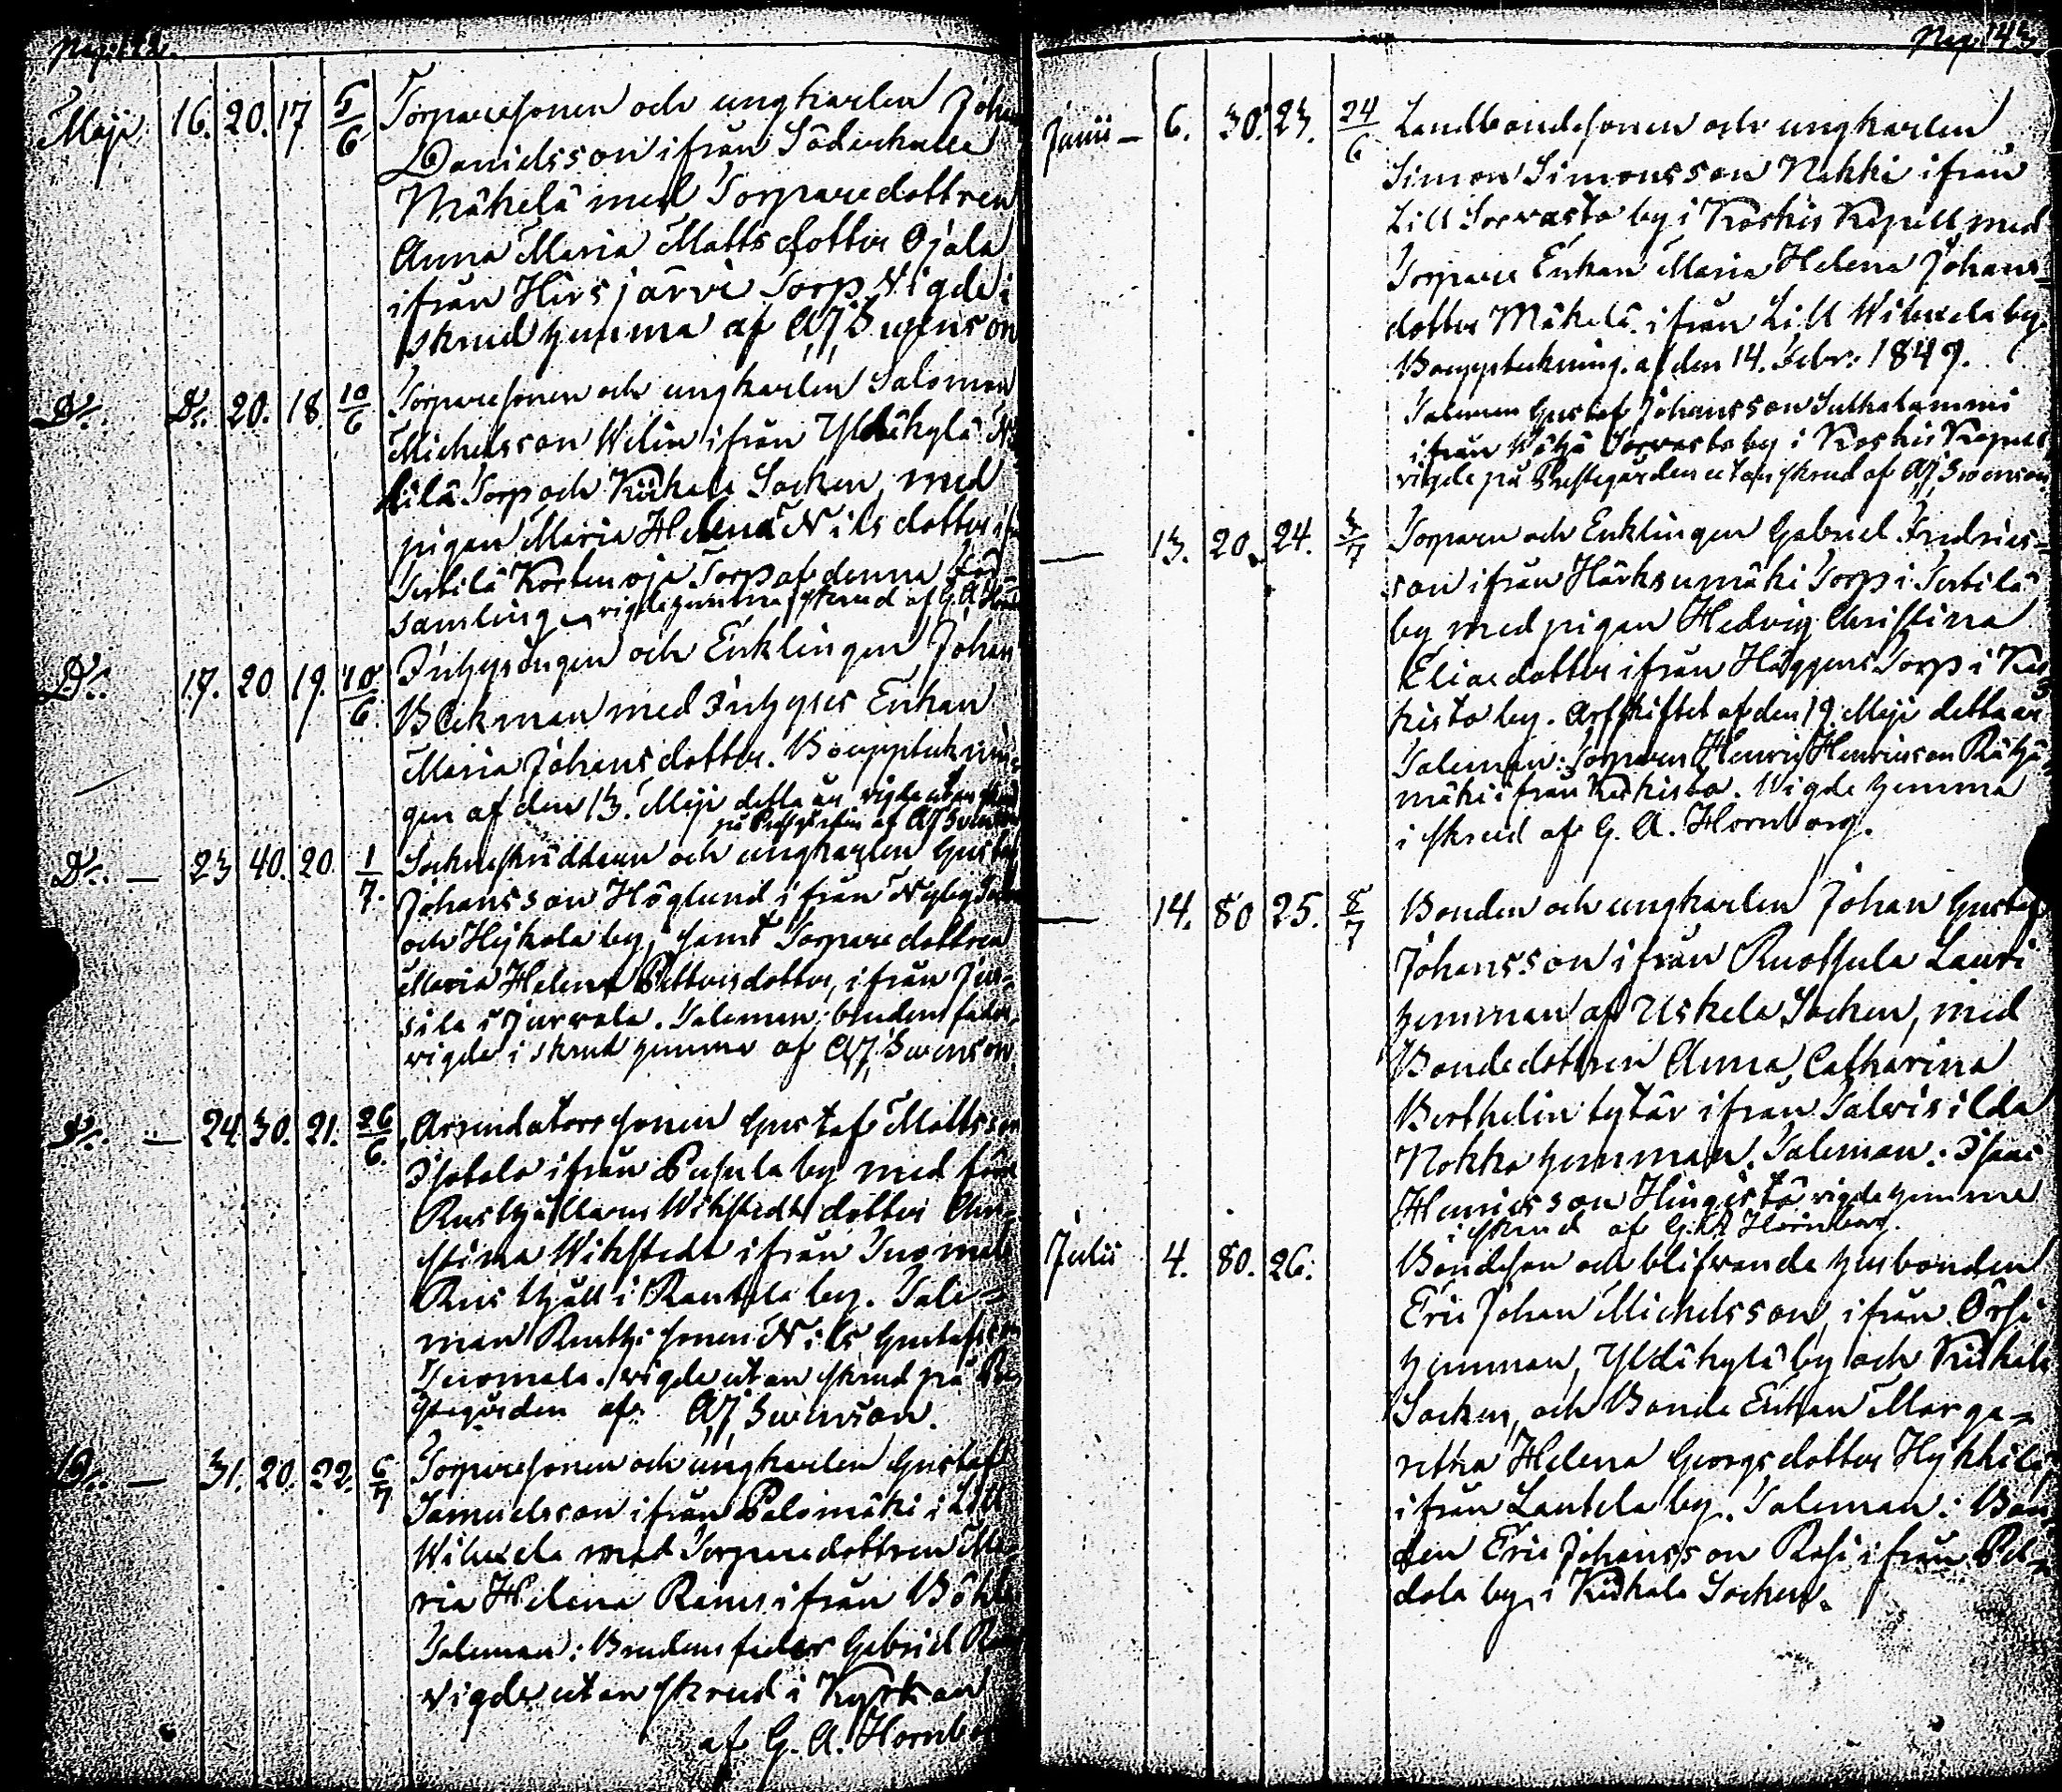 Maji 16. 20. 17 5/6 Torparesonen och ungkarlen Johan
Danielsson ifrån Söderkulla
Mäkelä med Torparedottren
Anna Maria Matts dotter Ojala
ifrån Hirsjärvi Torp. Vigde i
skrud hemma af A J Svenson
Do. Do. 20. 18. 10/6 Torparesonen och ungkarlen Salomon
Michelsson Welin ifrån Yldäkylä
Torp och Kiikala Socken, med
pigan Maria Helena Nils dotter
Terttilä Kortenoja Torp af denna För
samling, vigde hemma i skrud af G. A.
Do. 17. 20 19. 10/6. Inhysingen och Enklingen Johan
Beckman med Inhyses Enkan
Maria Johansdotter. Bouppteknin
gen af den 13. Maji detta år vigde utan skrud
på Prestgården af A J Svenson
Do. — 23 40. 20. 1/7. Sockneskräddaren och ungkarlen Gustaf
Johansson Höglund ifrån Nyby
och Hykola by, samt Torparedottren
Maria Helena Pettersdotter, ifrån Jus-
sila i Jurvala. Taleman: brudens fader,
vigde i skrud hemma af A J Svenson
Do. — 24. 30. 21. 26/6. Arrendators sonen Gustaf Mattsson
Isotalo ifrån Pusula by med förra
Rusthållaren Wikstedts dotter Chri-
stina Wikstedt ifrån Tuomala
Rusthåll i Rautela by. Tale-
man Rusth: sonen Nils Gustafsson
Tuomala. vigde utan skrud på Pre
stgården af A J Svenson.
Do. — 31. 20. 22. 6/7 Torparesonen och ungkarlen Gustaf
Samuelsson ifrån Palomäki i Lill
Wiluxela med Torparedottren Ma
ria Helena Rams ifrån
Taleman: Brudens fader Gabriel
vigde utan skrud i Kyrkan
af G. A. Hornbo
Pag. 143
Junii — 6. 30. 23. 24/6 Landbondesonen och ungkarlen
Simon Simonsson Nikki ifrån
Lill Sorvasto by i Koskis Kapell, med
Torpare Enkan Maria Helena Johans-
dotter Mäkelä ifrån Lill Wiluxela by.
Bouppteckning. af den 14. Febr: 1849.
Taleman Gustaf Johansson Sulkalammi
ifrån Wähä Sorvasto by i Koskis Kapell,
vigde på Prestegården utan skrud af A J Svenson
— 13. 20. 24. 3/7 Torparen och Enklingen Gabriel Fredrics-
son ifrån Härksumäki Torp i Terttilä
by, med pigan Hedvig Christina
Eliaedotter ifrån Häggens Torp i Ker
kisto by. Arfskiftet af den 19. Maji detta år
Taleman: Torparen Henric Henricsson Rähjä-
mäki ifrån Kerkisto. Vigde hemma
i skrud af G. A. Hornborg.
— 14. 80 25. 8/7 Bonden och ungkarlen Johan Gustaf
Johansson ifrån Ruotsula Lauri
hemman af Uskela Socken, med
Bondedottren Anna Catharina
Berthelin tytär ifrån Talvisilda
Nokka hemman. Taleman: Isaac
Henricsson Hingistö vigde hemma
i skrud af G. A Hornborg.
Julii 4. 80. 26. Bondeson och blifvande husbonden
Eric Johan Michelsson, ifrån Örsi
hemman, Yldäkylä by och Kiikala
Socken, och Bonde Enkan Marga-
retha Helena Georgsdotter Hykkilä
ifrån Lautela by. Taleman: Bon-
den Eric Johansson Rasi ifrån Pel-
dola by i Kiikala Socken.